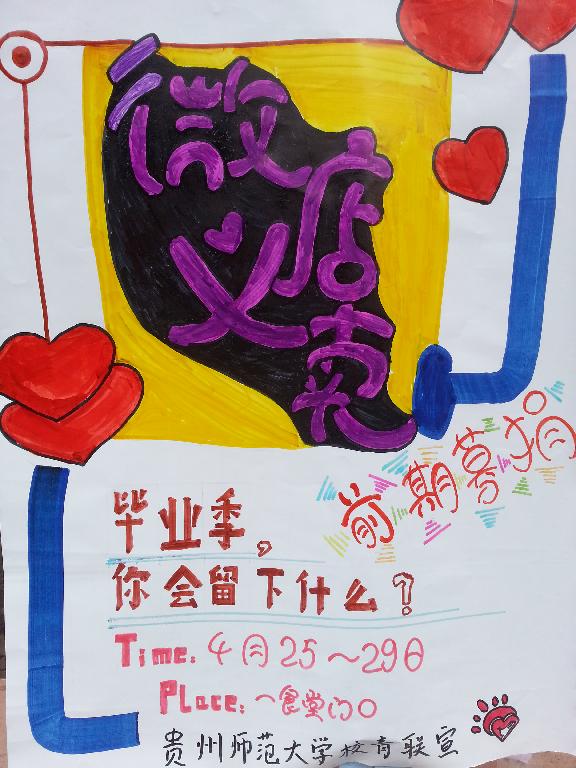 微店
义卖
前期募捐
毕业季。
你会留下什么?
Time: 4月25~29日
Place: 一食堂门口
贵州师范大学校青联宣